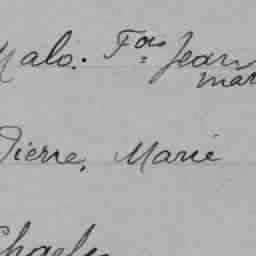 Malo. Fois Jean
mar
Pierre, Marie
Charles